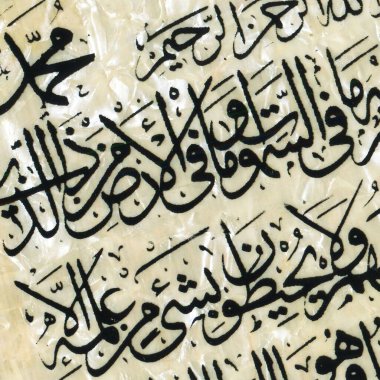 الله الرحمن الرحيم
محمد
ما في السموات وما في الأرض من ذا الذي
ولا يحيطون بشيء من علمه إلا
وهو